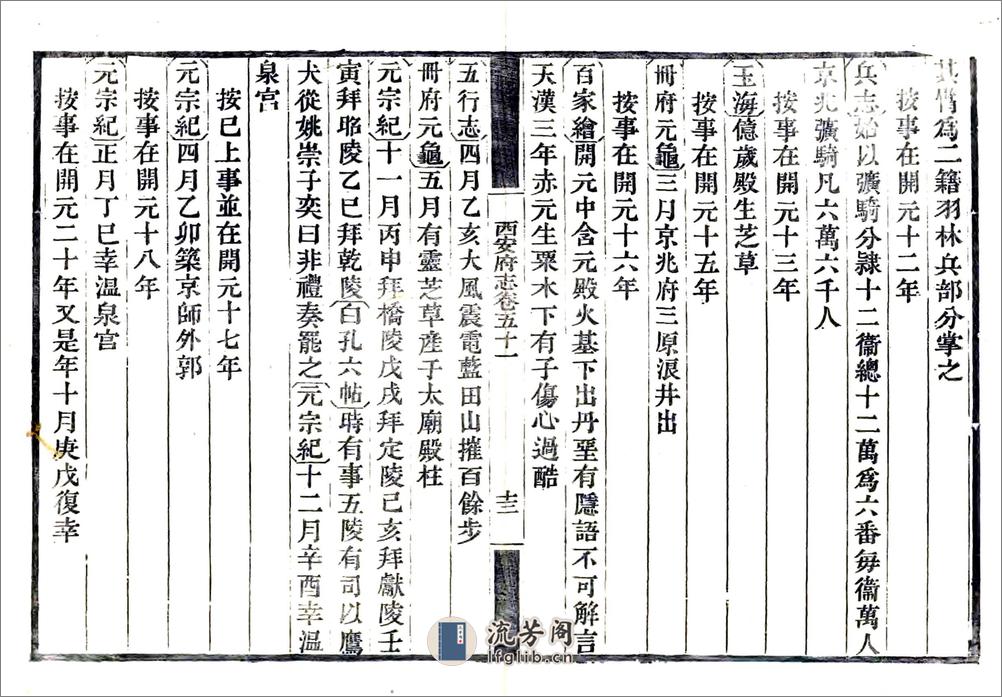 其膂爲二籍羽林兵部分掌之
按事在開元十二年
兵志始以彍騎分隸十二衞總十二萬爲六番每衞萬人
京兆彍騎凡六萬六千人
按事在開元十三年
玉海億歲殿生芝草
按事在開元十五年
冊府元龜三月京兆府三原浪井出
按事在開元十六年
百家繪開元中含元殿火基下出丹堊有隱語不可解言
天漢三年赤元生粟木下有子傷心過酷
西安府志卷五十一
十三
五行志四月乙亥大風震電藍田山摧百餘步
冊府元龜五月有靈芝草産于太廟殿柱
元宗紀十一月丙申拜橋陵戊戌拜定陵己亥拜獻陵壬
寅拜昭陵乙巳拜乾陵白孔六帖時有事五陵有司以鷹
犬從姚崇子奕曰非禮奏罷之元宗紀十二月辛酉幸溫
泉宮
按已上事並在開元十七年
元宗紀四月乙卯築京師外郭
按事在開元十八年
元宗紀正月丁巳幸溫泉宮
按事在開元二十年又是年十月庚戌復幸
流芳阁
lfglib.cn